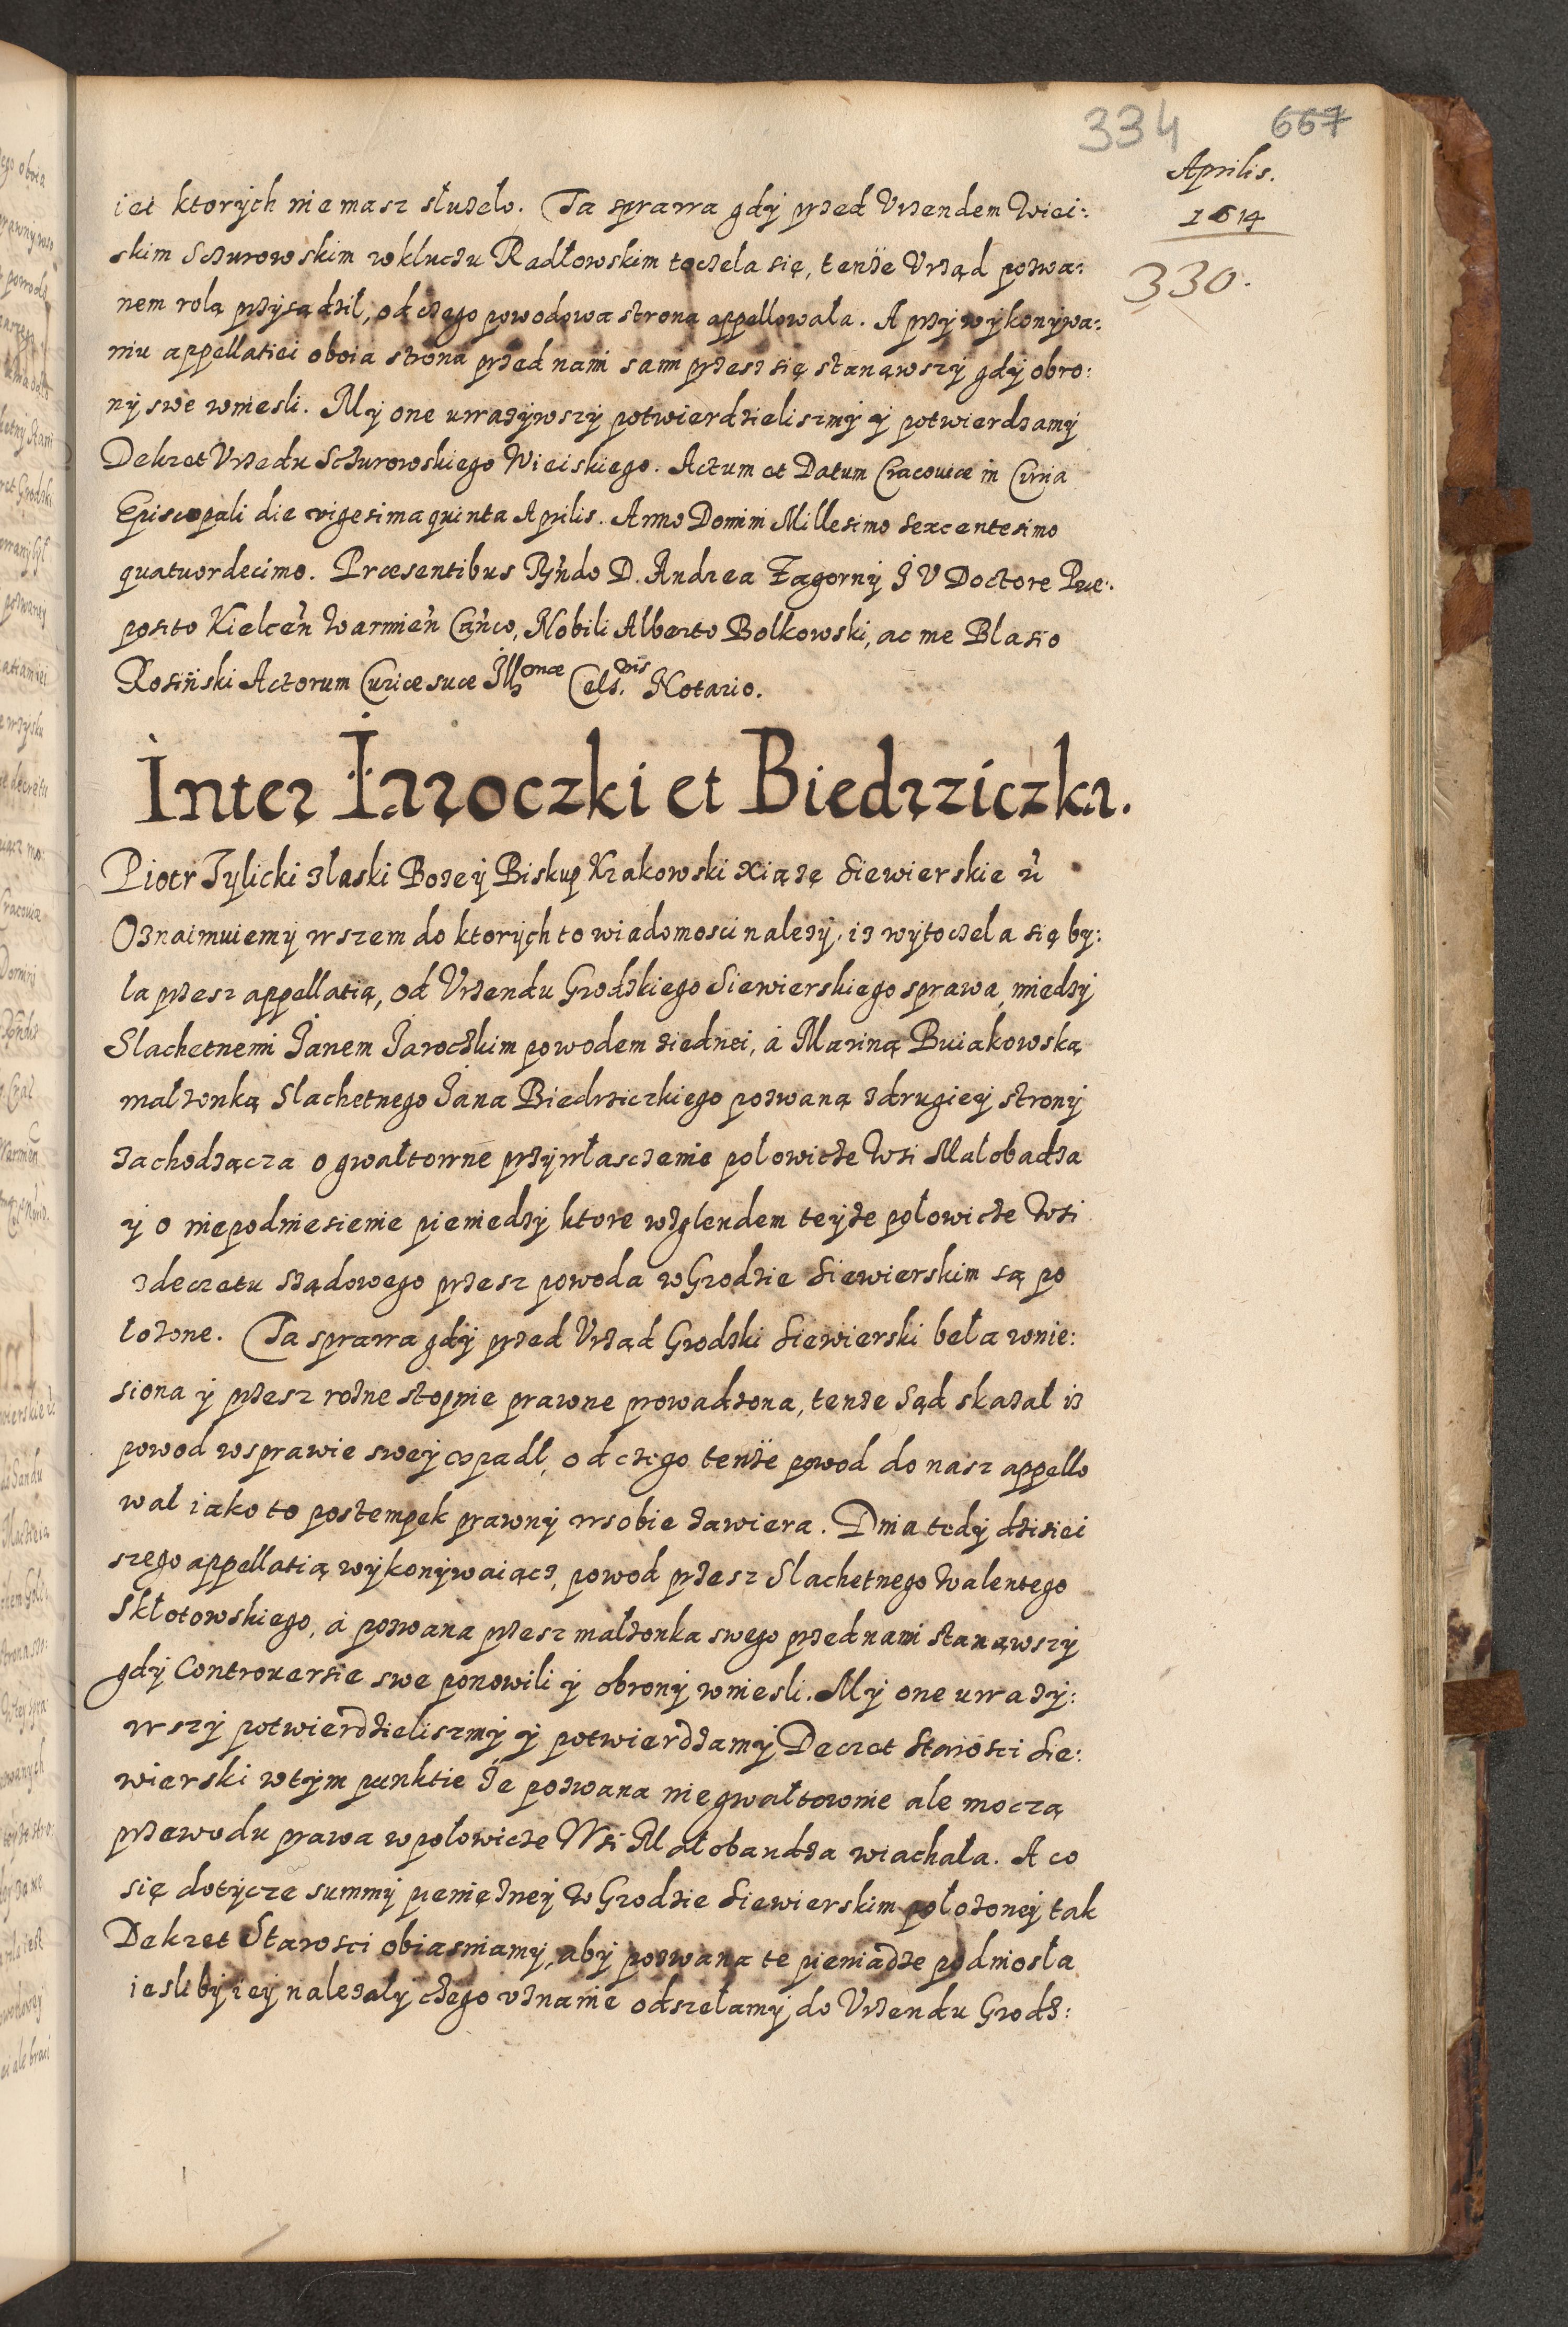 334 667
Aprilis.
1614
330.
iei ktorych nie masz służeło. Ta sprawa gdy przed Vrzendem Wiei:
skim Sczurowskim w kluczu Radłowskim toczela się, tenże Vrząd pozwa:
nem rolą przysądzil, od czego powodowa strona appellowała. A przy wykonywa:
niu appellatiei oboia strona przed nami sami przesz się stanąwszy gdy obro:
ny swe wniesli. My one uwazywszy potwierdzielismy y potwierdzamy
Dekret Vrzedu Sczurowskiego Wieiskiego. Actum et Datum Cracouiæ in Curia
Episcopali die vigesima quinta Aprilis. Anno Domini Millesimo sexcentesimo
quatuordecimo. Præsentibus Rṅdo D. Andrea Zagorny J V Doctore Præ:
posito Kielceṅ Warmieṅ Caṅco, Nobili Alberto Bolkowski, ac me Blasio
Rosiński Actorum Curiæ suæ Illꝫ Cels. Notario.
Inter Jaroczki et Biedrziczka.
Piotr Tylicki z łaski Bożey Biskup Krakowski Xiążę Siewierskie
Oznaimuiemy wszem do ktorych to wiadomosci należy, iż wytoczela się by:
la przesz appellatią, od Vrzendu Grodzkiego Siewierskiego sprawa, miedzy
Slachetnemi Janem Jaroczkim powodem ziednei, á Mariną Buiakowską
malżonką Slachetnego Jana Biedrziczkiego pozwaną z drugiey strony
zachodzącza o gwałtowne przywłasczenie polowicze Wsi Malobadza
y o niepodniesienie pieniedzy ktore wzglendem teyże połowicze Wsi
z decretu sządowego przesz powoda w Grodzie Siewierskim są po
łożone. Ta sprawa gdy przed Vrząd Grodzki Siewierski beła wnie:
siona y przesz rożne stopnie prawne prowadzona, tenże Sąd skazał iż
powod w sprawie swey upadl, od czego tenże powod do nasz appello
wal iako to postempek prawny w sobie zawiera. Dnia tedy dzisiei
szego appellatią wykonywaiącz, powod przesz Slachetnego Walentego
Skłotowskiego, á pozwana przesz małżonka swego przed nami stanąwszy
gdy Controuersie swe ponowili y obrony wniesli. My one uwazy:
wszy potwierdzieliszmy y potwierdzamy Decret Starosci Sie:
wierski w tym punktie że pozwana nie gwałtownie ale moczą
przewodu prawa w połowicze Wsi Małobandza wiachała. A co
się dotycze summy pienięzney w Grodzie Siewierskim położoney tak
Dekret Starosci obiasniamy, aby pozwana te pieniadze podniosła
iesliby iey należaly czego vznanie odszełamy do Vrzendu Grodz: